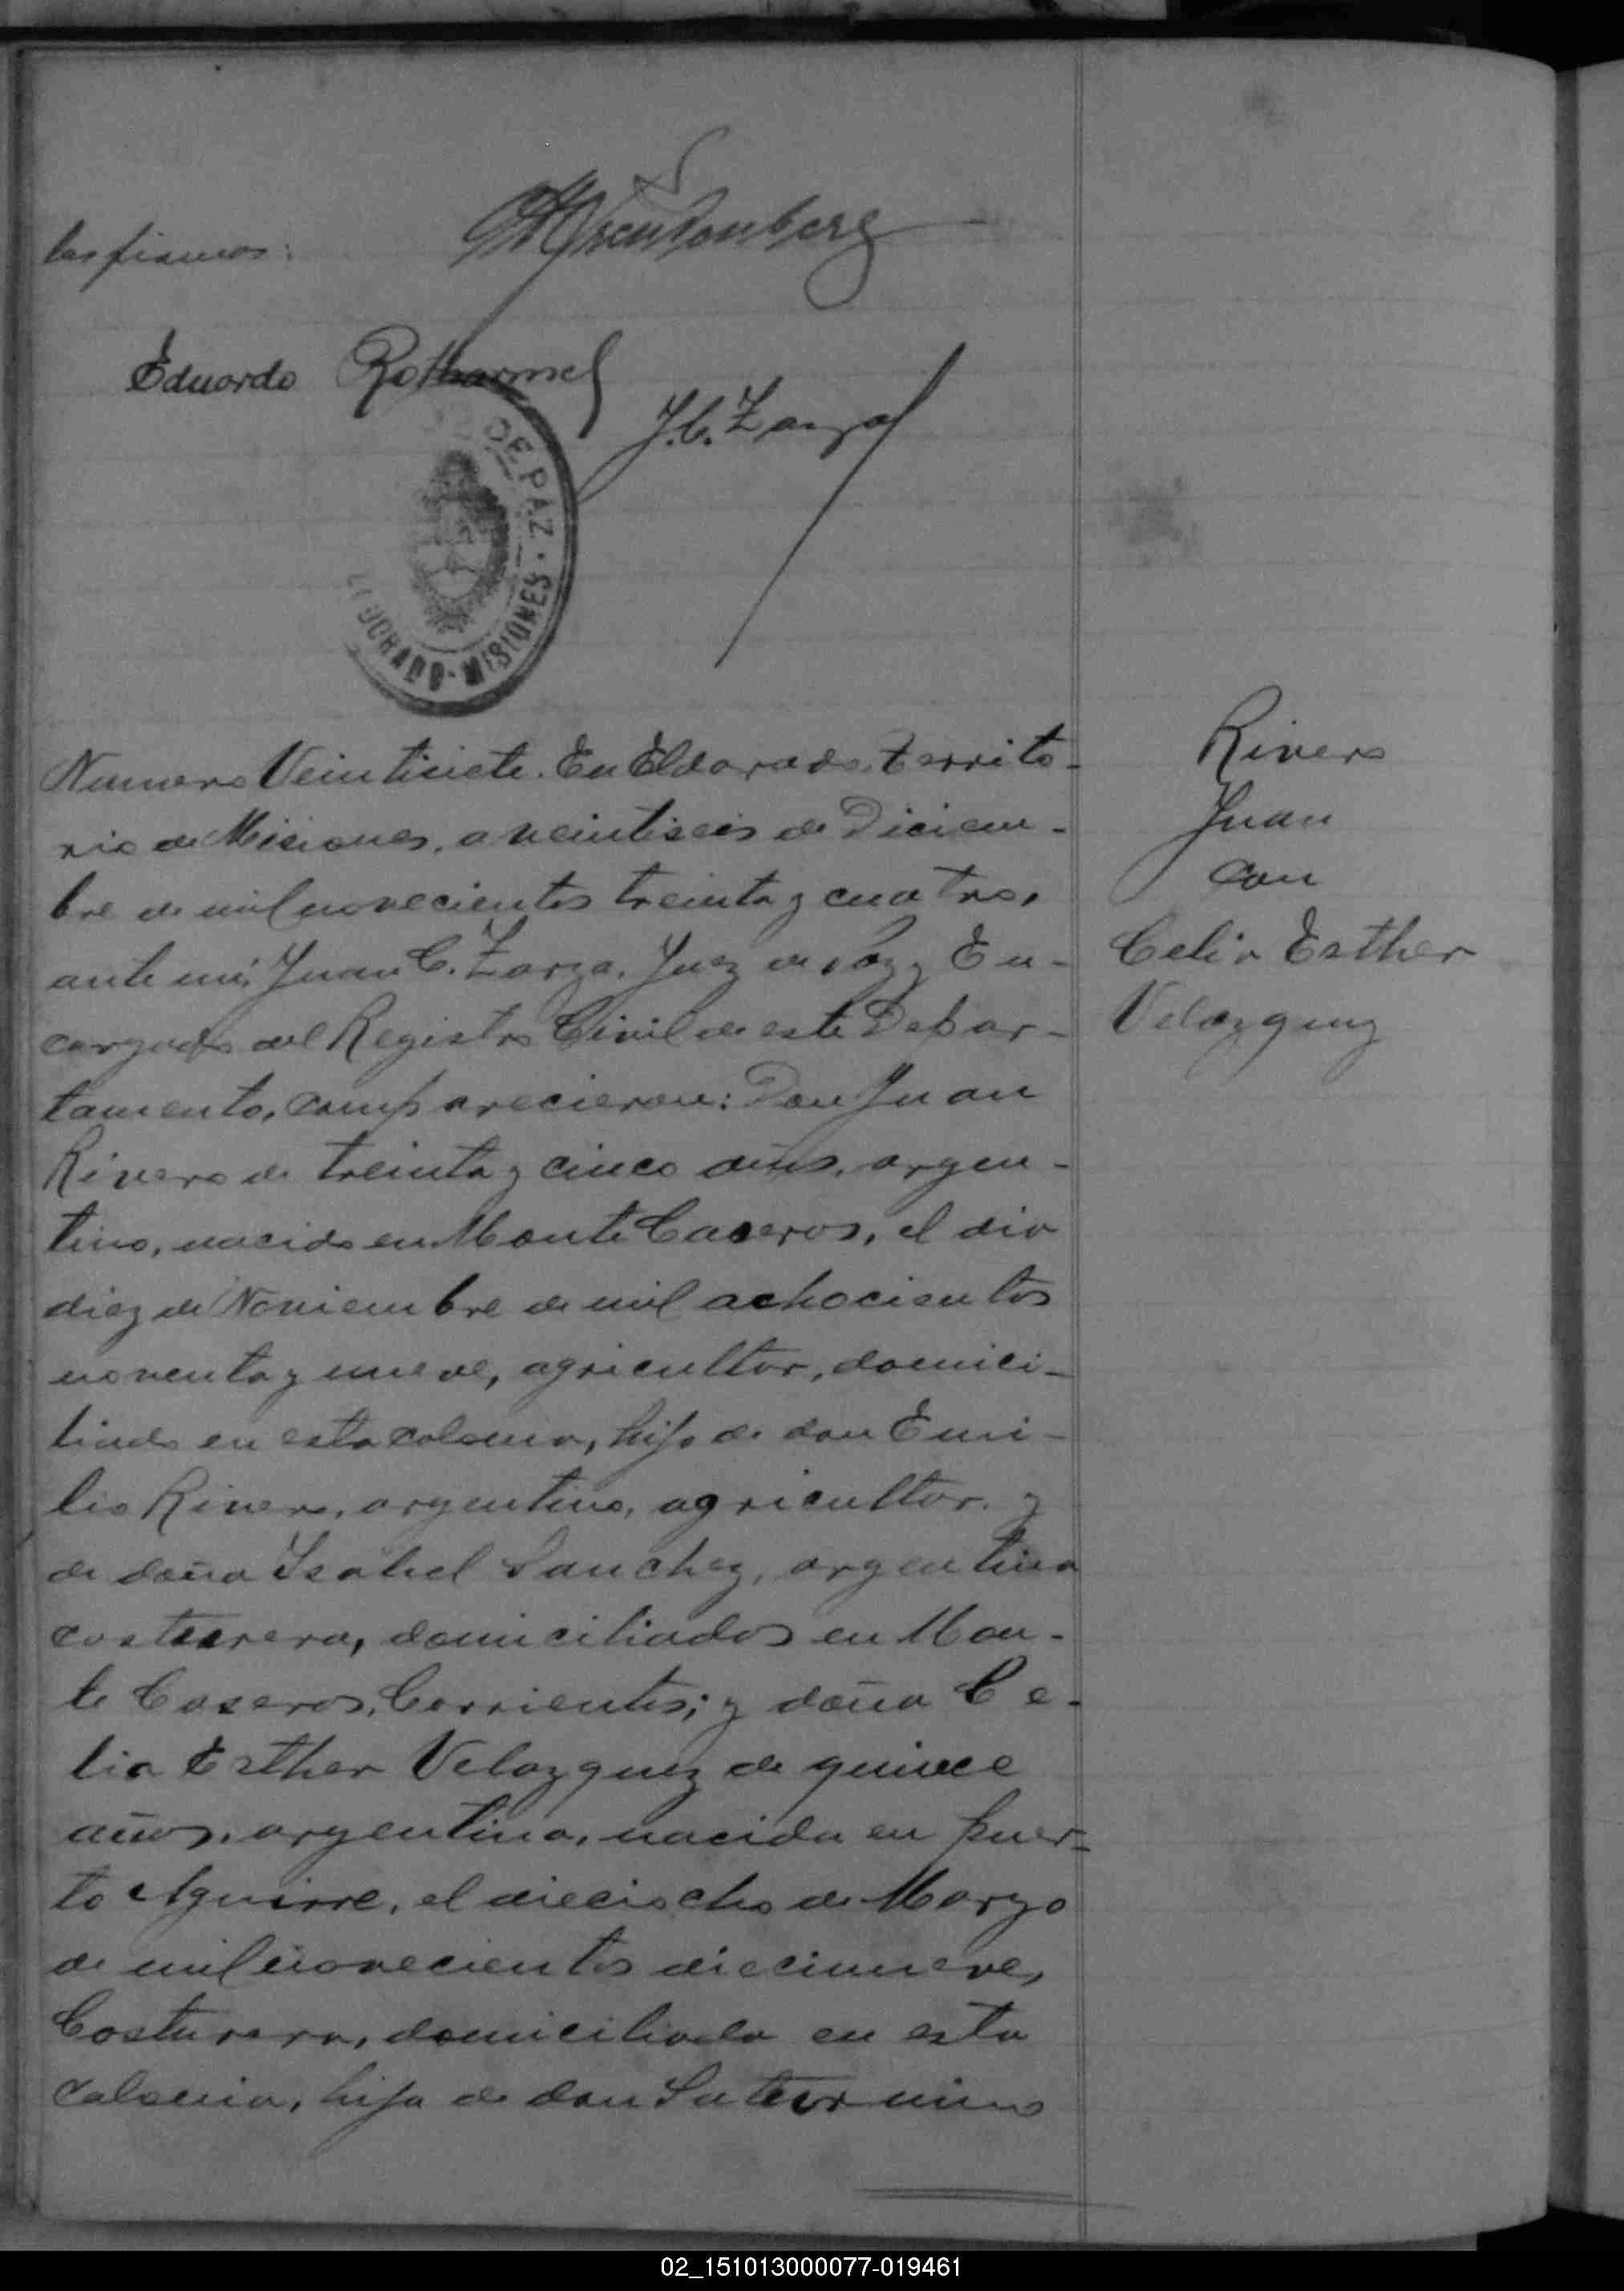 las firmas:
Eduardo Rotharmel
J. C. Zarza
DE PAZ · ELDORADO - MISIONES
Numero Veintisiete. En Eldorado, Territo-
rio de Misiones, a veintiseis de Diciem-
bre de mil novecientos treinta y cuatro,
ante mi, Juan C. Zarza, Juez de Paz y En-
cargado del Registro Civil de este Depar-
tamento, comparecieron: Don Juan
Rivero de treinta y cinco años, argen-
tino, nacido en Monte Caseros, el dia
diez de Noviembre de mil ochocientos
noventa y nueve, agricultor, domici-
liado en esta colonia, hijo de don Emi-
lio Rivero, argentino, agricultor, y
de doña Isabel Sanchez, argentina
costurera, domiciliados en Mon-
te Caseros, Corrientes; y doña Ce-
lia Esther Velazquez de quince
años, argentina, nacida en Puer-
to Aguirre, el dieciocho de Marzo
de mil novecientos diecinueve,
Costurera, domiciliada en esta
colonia, hija de don Saturnino
Rivero
Juan
con
Celia Esther
Velazquez
02_151013000077-019461